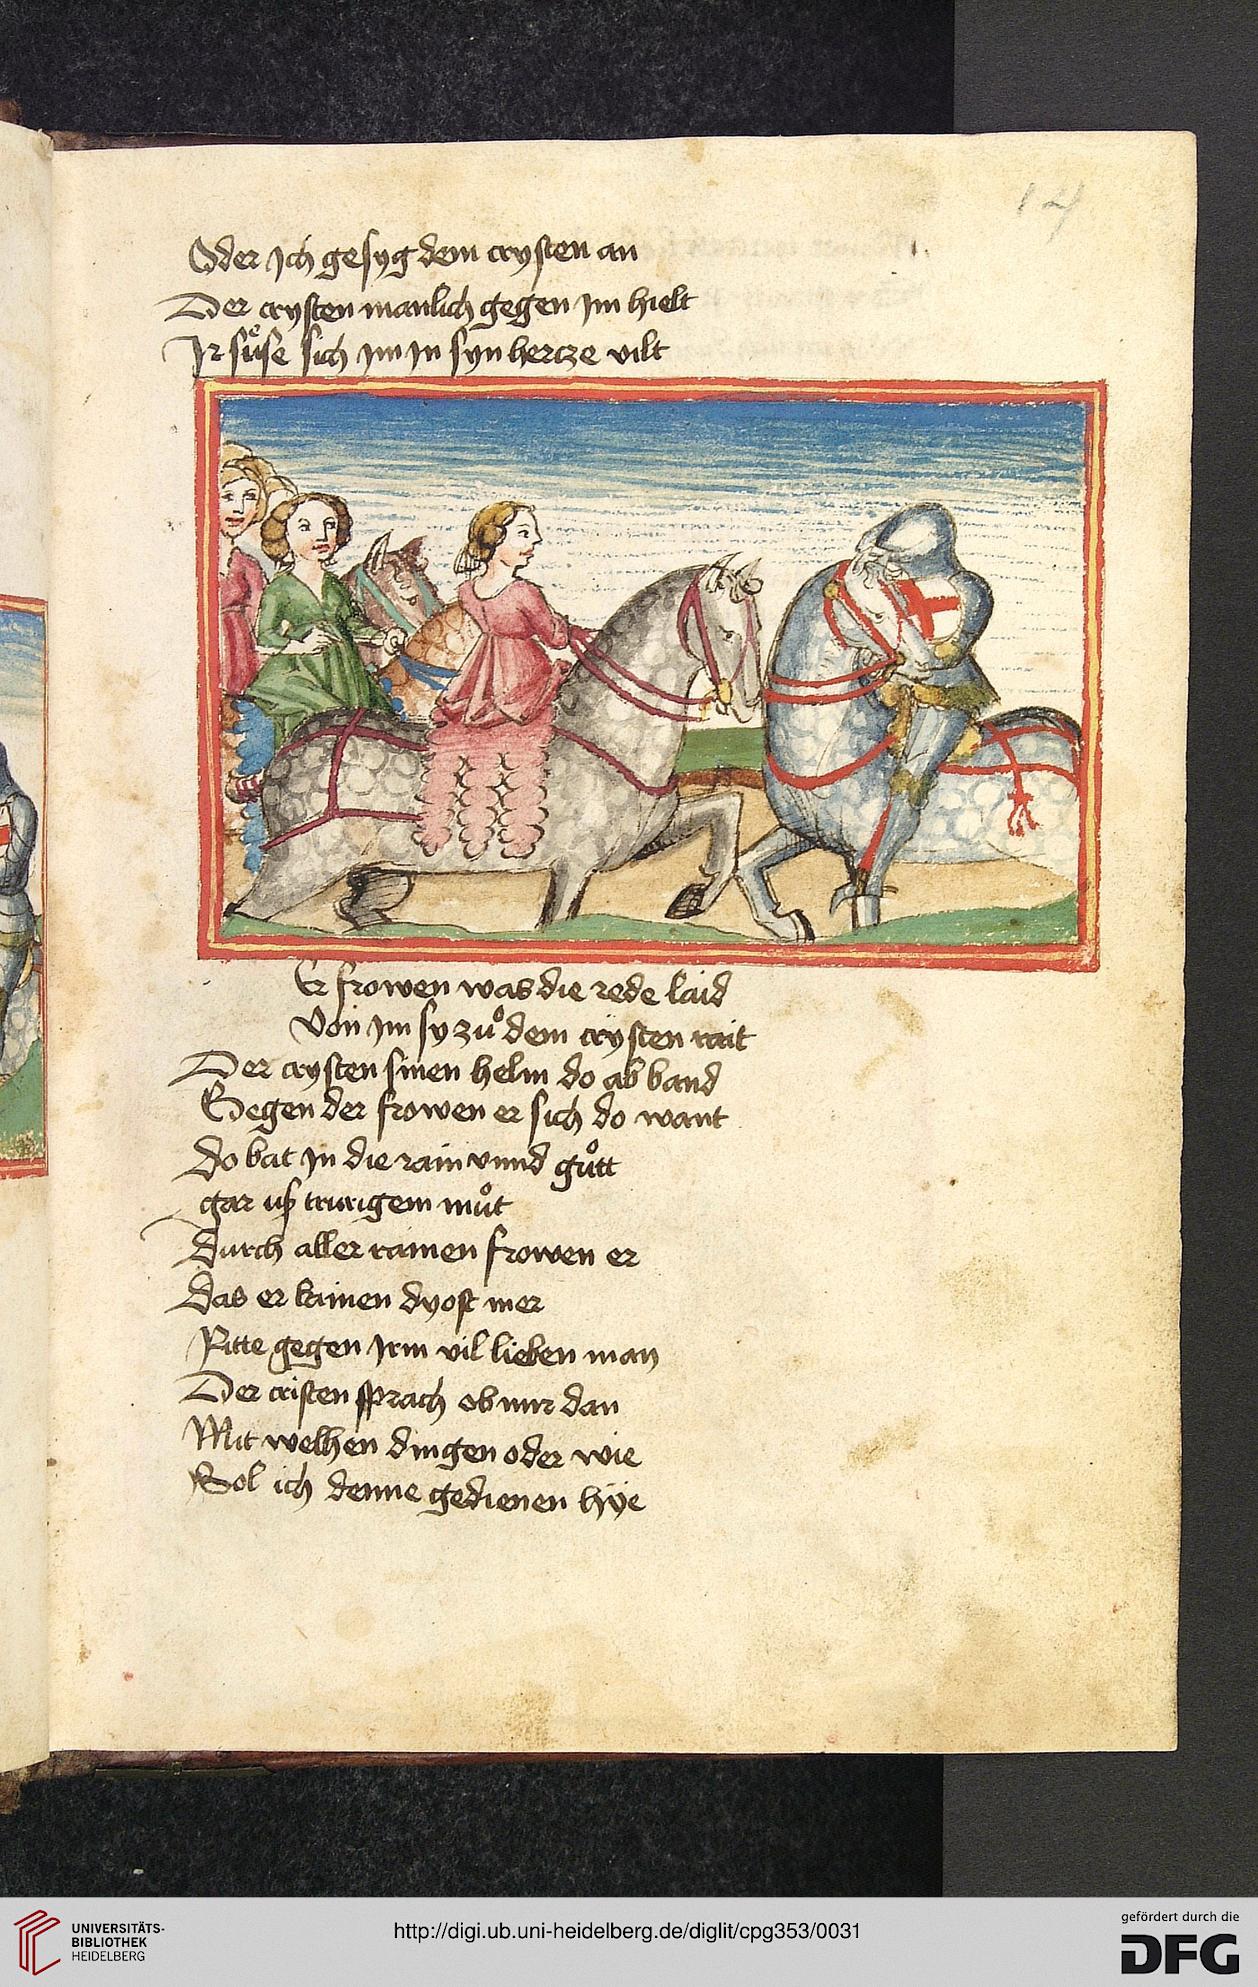 14
Oder Ich gesyg dem crysten an
Der crysten manlich gegen Im hielt
Ir sůse sich Im In syn hercze vilt
Er frowen was die rede laid
Von Im sy zů dem crysten rait
Der crysten sinen helm do ab band
Gegen der frowen er sich do want
Do bat In die rain vnnd gůtt
gar uß trurigem můt
Durch aller rainen frowen er
Das er kainen dyost mer
Ritte gegen Irm vil lieben man
Der cristen sprach ob mir dan
Mit welhen dingen oder wie
Sol ich denne gedienen hye
UNIVERSITÄTS-
BIBLIOTHEK
HEIDELBERG
http://digi.ub.uni-heidelberg.de/diglit/cpg353/0031
gefördert durch die
DFG